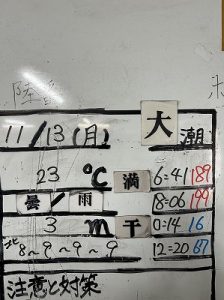 陸
11/13(月) 大潮
23 ℃ 満 6:41 189
曇/雨 18:06 199
3 m 干 0:14 16
北 8~9~9~9 12:20 67
注意と対策